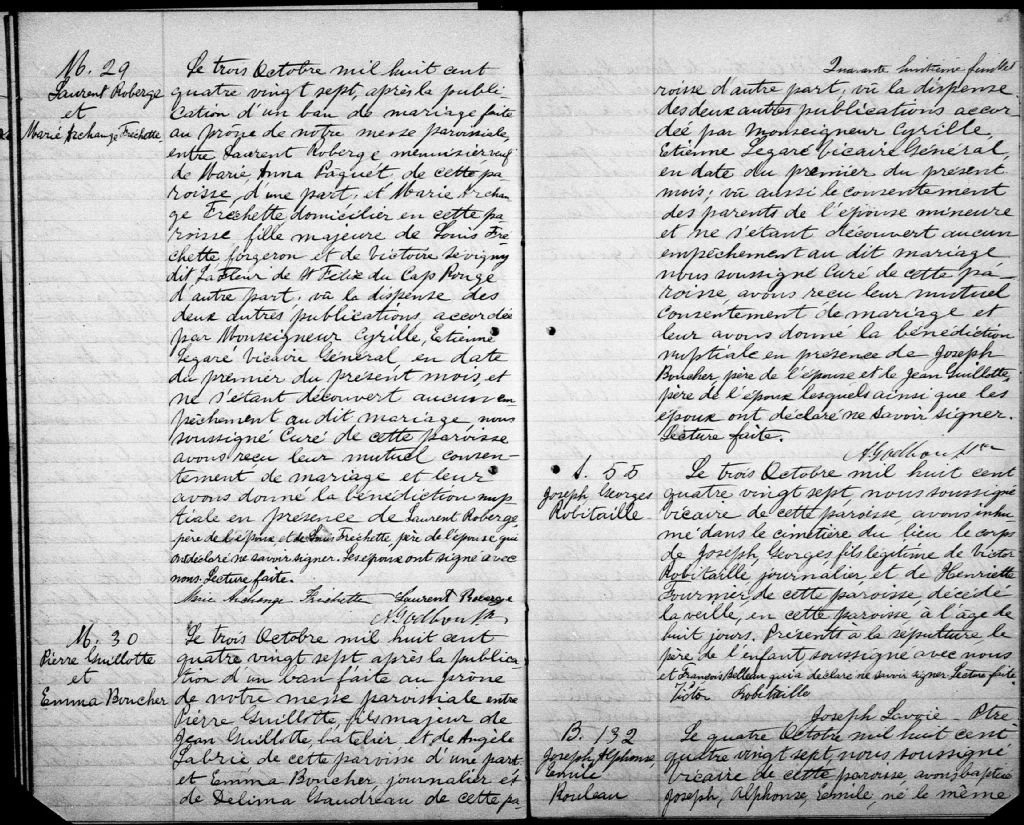 M. 29
Laurent Roberge
et
Marie Archange Frechette.
Le trois Octobre mil huit cent
quatre vingt sept, après la publi
cation d'un ban de mariage faite
au prône de notre messe paroissiale,
entre Laurent Roberge menuisier veuf
de Marie, Anna Paquét, de cette pa
roisse, d'une part, et Marie Archan
ge Fréchette domicilier en cette pa
roisse fille majeure de Louis Fré-
chette forgeron et de Victoire Sevigny
dit LaFleur de St Felix du Cap Rouge
d'autre part, vû la dispense des
deux autres publications accordée
par Monseigneur Cyrille, Etienne
Legaré Vicaire Général, en date
du premier du présent mois, et
ne s'étant découvert aucun em
pêchement au dit mariage nous
soussigné Curé de cette paroisse
avons reçu leur mutuel consen-
tement de mariage et leur
avons donné la bénédiction nup
tiale en présence de Laurent Roberge,
père de l'époux et de Louis Fréchette, père de l'épouse qui
ont déclaré ne savoir signer. Les époux ont signé avec
nous. Lecture faite.
Marie Archange Frechette Laurent Roberge
M. 30
Pierre Guillotte
et
Emma Boucher
Le trois Octobre mil huit cent
quatre vingt sept après la publica
tion d'un ban faite au prône
de notre messe paroissiale entre
Pierre Guillotte, fils majeur de
Jean Guillotte, batelier et de Angèle
Labrie de cette paroisse d'une part
et Emma Boucher, journalier et
de Delima Gaudréau de cette pa
Quarante huitieme feuillet
roisse d'autre part, vû la dispense
des deux autres publications accor
dée par Monseigneur Cyrille,
Etienne Legaré Vicaire Général,
en date du premier du présent
mois; vû aussi le consentement
des parents de l'épouse mineure
et ne s'étant découvert aucun
empêchement au dit mariage
nous soussigné Curé de cette pa-
roisse, avons reçu leur mutuel
consentement de mariage et
leur avons donné la bénédiction
nuptiale en présence de Joseph
Boucher, père de l'épouse et le Jean Guillotte,
père de l'époux lesquels ainsi que les
époux ont déclaré ne savoir signer.
Lecture faite.
S. 55
Joseph Georges
Robitaille
Le trois Octobre mil huit cent
quatre vingt sept, nous soussigné
vicaire de cette paroisse avons inhu
mé dans le cimetière du lieu le corps
de Joseph Georges fils légitime de Victor
Robitaille journalier, et de Henriette
Fournier, de cette paroisse, décédé
la veille, en cette paroisse, à l'âge de
huit jours. Présents à la sépulture le
père de l'enfant soussigné avec nous
et François Belleau qui a déclaré ne savoir signer. Lecture faite
Victor Robitaille
Joseph Lavoie Ptre
B. 132
Joseph, Alphonse,
Emile
Rouleau
Le quatre Octobre mil huit cent
quatre vingt sept, nous soussigné
vicaire de cette paroisse, avons baptisé
Joseph, Alphonse, Emile, né le même